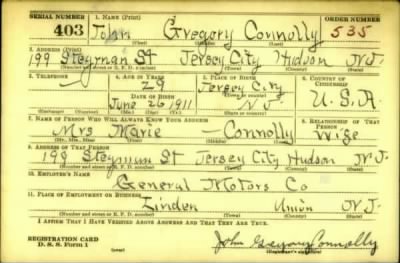 SERIAL NUMBER 1. NAME (Print) ORDER NUMBER
403 John Gregory Connolly 535
(First) (Middle) (Last)
2. ADDRESS (Print)
199 Stegman St Jersey City Hudson N.J.
(Number and street or R. F. D. number) (Town) (County) (State)
3. TELEPHONE 4. AGE IN YEARS 5. PLACE OF BIRTH 6. COUNTRY OF CITIZENSHIP
29 Jersey City
DATE OF BIRTH
June 26 1911 N.J. U.S.A.
7. NAME OF PERSON WHO WILL ALWAYS KNOW YOUR ADDRESS 8. RELATIONSHIP OF THAT PERSON
Mrs Marie — Connolly Wife
(Mr., Mrs., Miss) (First) (Middle) (Last)
9. ADDRESS OF THAT PERSON
199 Stegman St Jersey City Hudson N.J.
(Number and street or R. F. D. number) (Town) (County) (State)
10. EMPLOYER'S NAME
General Motors Co
11. PLACE OF EMPLOYMENT OR BUSINESS
Linden Union N.J.
(Number and street or R. F. D. number) (Town) (County) (State)
I AFFIRM THAT I HAVE VERIFIED ABOVE ANSWERS AND THAT THEY ARE TRUE.
REGISTRATION CARD
D. S. S. Form 1 John Gregory Connolly
(Registrant's signature)